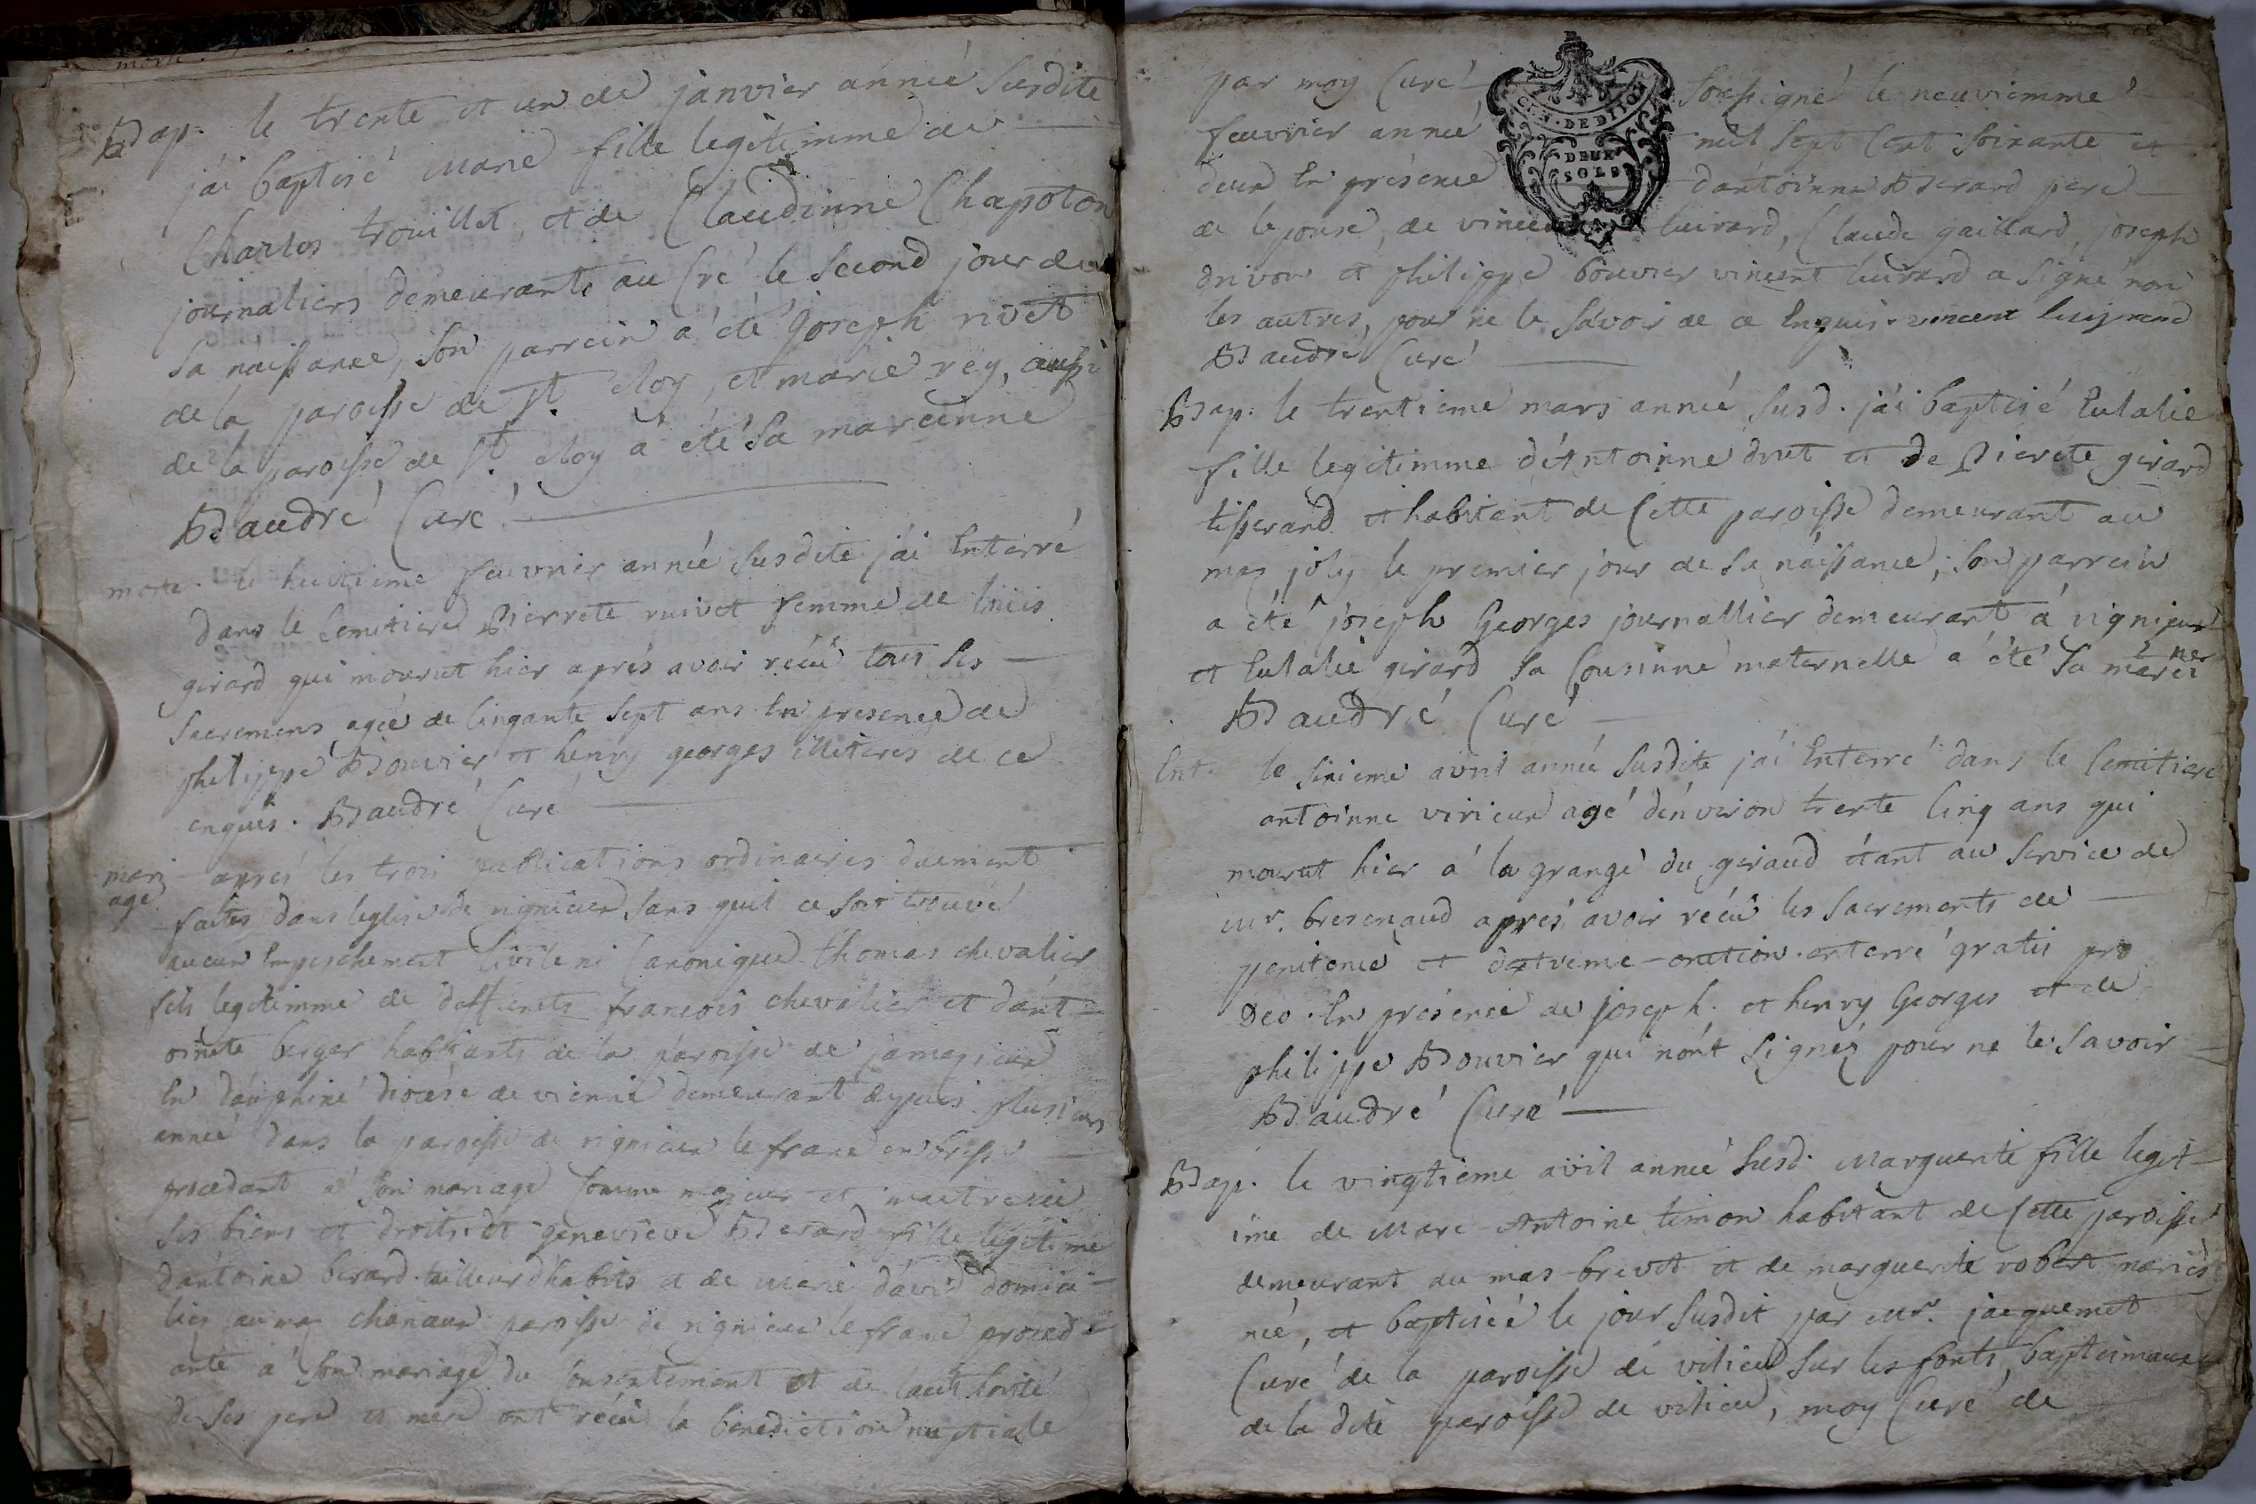 Bap. le trente et un de janvier année susdite
j'ai baptisé Marie fille legitimme de
Charles trouillet, et de Claudinne Chapoton
journaliers demeurants au Cré le second jour de
sa naissance, son parrein a été joseph rivet
de la paroisse de St. eloy, et marie rey, aussi
de la paroisse de St. eloy a été sa mareinne
Baudré Curé
morte. le huitieme feuvrier année susdite j'ai Enterré
dans le Cemitiere Pierrete ruivet femme de louis
girard qui mourut hier aprés avoir réçû tous ses
sacremens ageé de Cinqante sept ans En presence de
philippe Bouvier et henry georges illiteres de ce
enquis. Baudré Curé
mari age aprés les trois publications ordinaires duement
faites dans leglise de rignieux sans quil ce soit trouvé
aucun Empeschement Civile ni Canonique thomas chevalier
fils legitimme de deffunts françois chevalier et d'ant-
oinete berger habitants de la paroisse de jameyzieux
En dauphiné diocése de vienne demeurant depuis plusieurs
anneé dans la paroisse de rignieux le franc en bresse
procedant a son mariage Comme majeur et maitre de
ses biens et droits et genevieve Berard fille legitime
d'antoine berard tailleur d'habits et de Marie david domici-
liés au mas chanaux paroisse de rignieux le franc proced-
ante a son mariage du Consentement et de l'authorité
de ses pere et mere ont réçû la benediction nuptialle
par moy Curé soussigné le neuviemme
feuvrier année mil sept Cent soixante et
deux En présence d'antoinne Berard pere
de lépouse, de vincent luirard, Claude gaillard, joseph
drivon et philippe bouvier vincent luirard a signé non
les autres, pour ne le sávoir de ce Enquis. vincent
Baudré Curé
GEN. DE DIJON
DEUX
SOLS
Bap. le trentieme mars anneé susd. j'ai baptisé Eulalie
fille legitimme d'Antoinne drut et de Pierete girard
tisserand et habitant de Cette paroisse demeurant au
mas joly le premier jour de sa náissance, son parrein
a été joseph Georges journallier demeurant á rignieux
et Eulalie girard sa Cousinne maternelle a été sa marei
Baudré Curé
Ent. le sixieme avril année susdite j'ai Enterré dans le Cemitiere
antoinne virieux agé dénviron trente Cinq ans qui
mourut hier á la grange du giraud étant au service de
Mr. bressenaud aprés avoir réçû les sacrements de
penitence et dextreme-onction. enterré gratis pro
Deo. En présence de joseph. et henry Georges et de
philippe Bouvier qui nónt signés pour ne le savoir
Baudré Curé
Bap. le vingtieme avril anneé susd. Marguerite fille legit-
ime de Marc Antoine timon habitant de Cette paroisse
demeurant au mas brevet et de marguerite robert mariés
née, et baptiséé le jour susdit par Mr. jacquemet
Curé de la paroisse dé vilieu sur les fonts baptismaux
de la dité paroisse de vilieu, moy Curé de